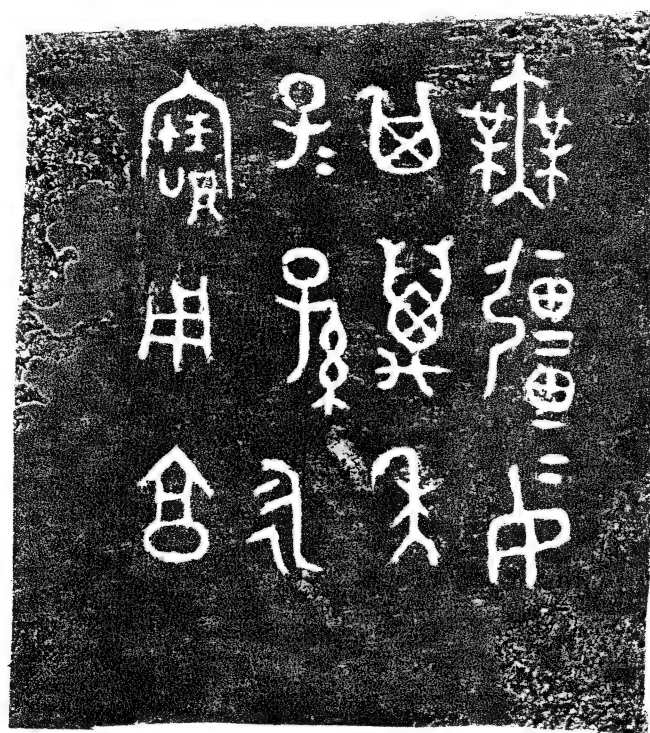 無彊
其萬年
子=孫永
寶用享